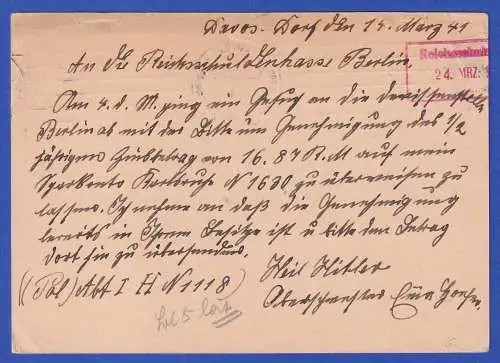 Davos-Dorf den 15. März 41
An die Reichsschuldenkasse Berlin.
Reichsschul
24. MRZ.
Am 4. d. M. ging ein Gesuch an die Devisenstelle
Berlin ab mit der Bitte um Genehmigung des 1/2
jährigen Zinsbetrag von 16.87 R.M auf mein
Sparkonto Karlsruhe N 1630 zu überweisen zu
lassen. Ich nehme an daß die Genehmigung
bereits in Ihrem Besitze ist u bitte den Betrag
dort hin zu übersenden.
Heil Hitler
(Pol) Abt I H N 1118)
Oberschwester